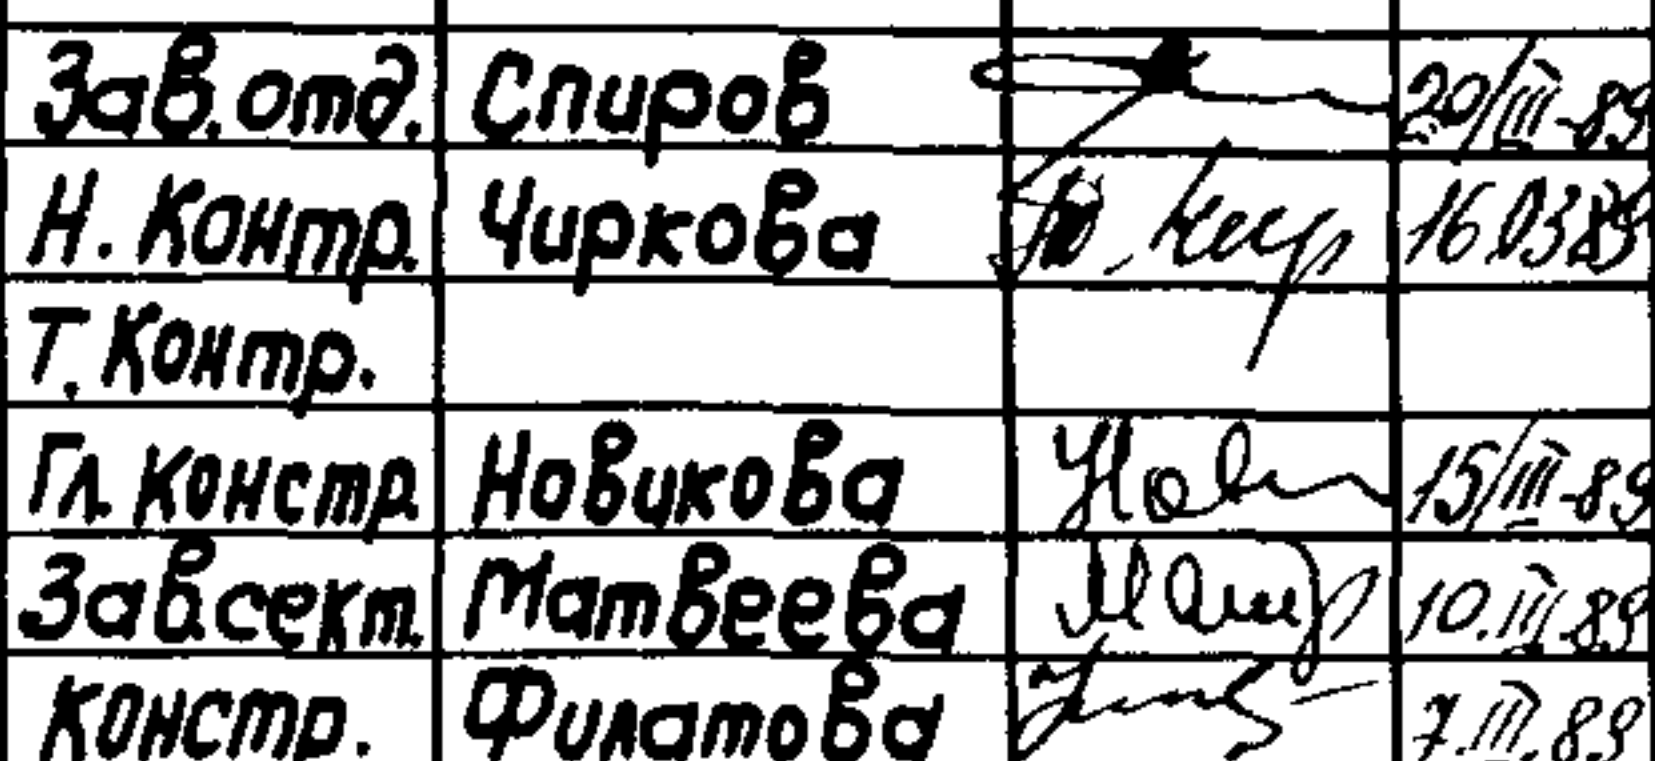 Зав.отд. Спиров 20/III-89
Н. Контр. Чиркова 16.03.89
Т. Контр.
Гл. Констр. Новикова 15/III-89
Зав.сект. Матвеева 10.III.89
Констр. Филатова 7.III.89